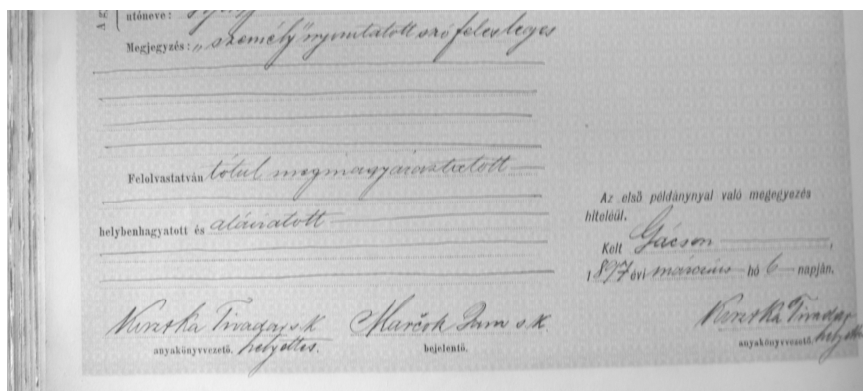 utóneve:
Megjegyzés: „személy” nyomtatott szó felesleges
Felolvastatván tótul megmagyaráztatott
helybenhagyatott és aláiratott
Az első példánynyal való megegyezés
hiteléül.
Kelt Gácson,
1897 évi március hó 6 napján.
Tivadar s. k. Marčok s. k. Tivadar
anyakönyvvezető. helyettes. bejelentő. anyakönyvvezető. helyettes